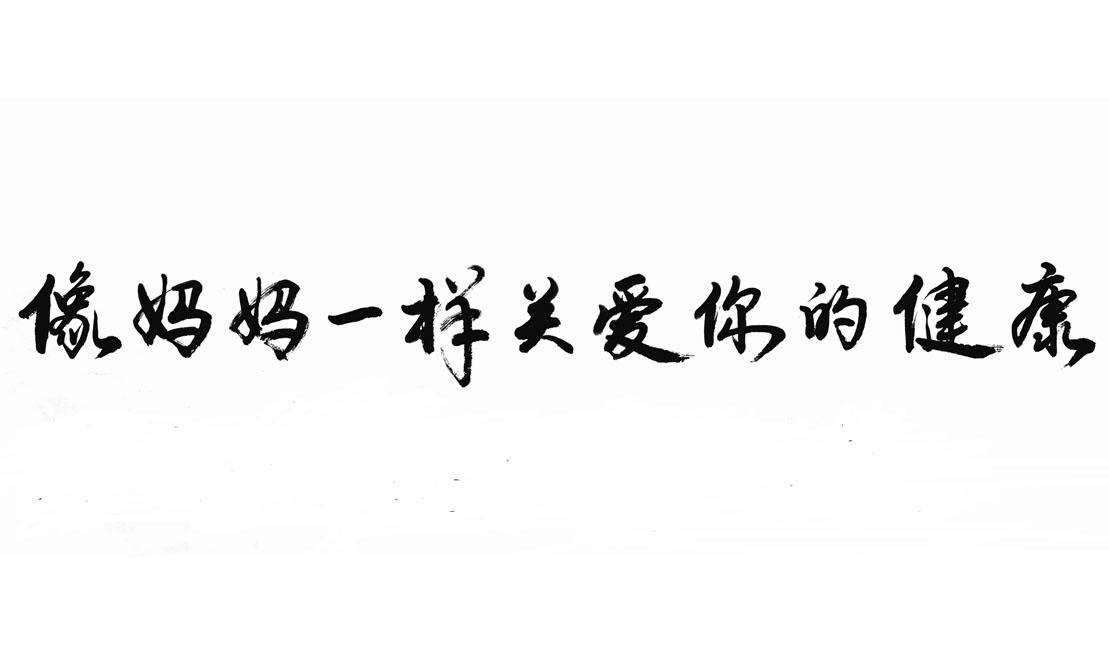 像妈妈一样关爱你的健康